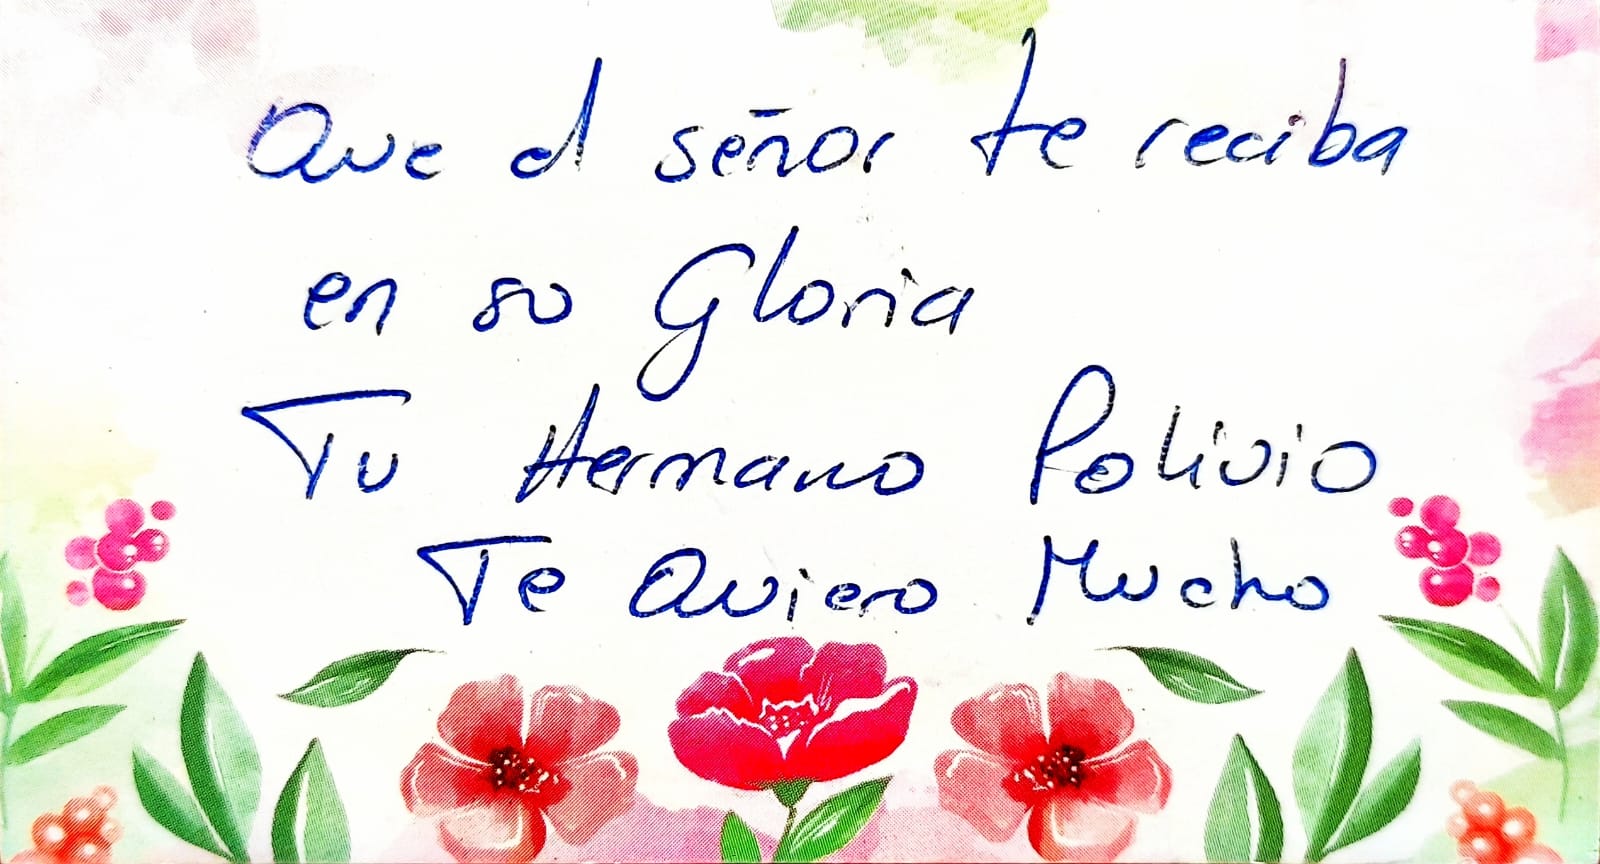 Que el señor te reciba
en su Gloria
Tu Hermano Polivio
Te Quiero Mucho